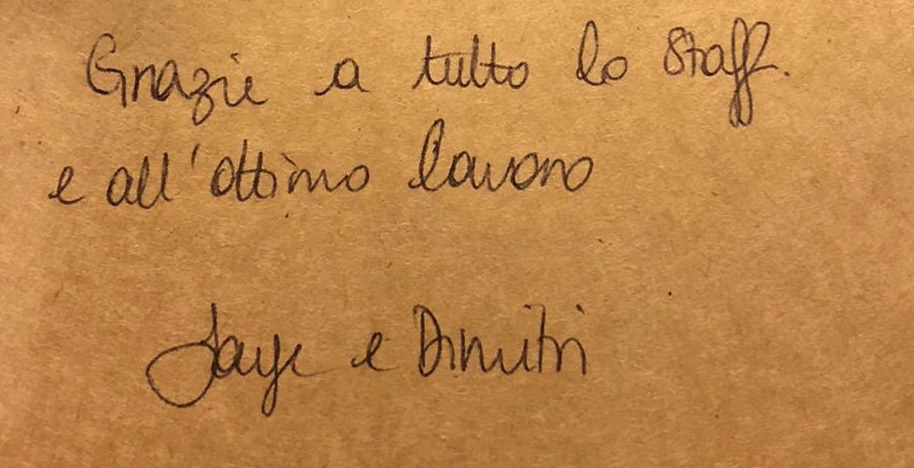 Grazie a tutto lo staff.
e all'ottimo lavoro
e Dimitri